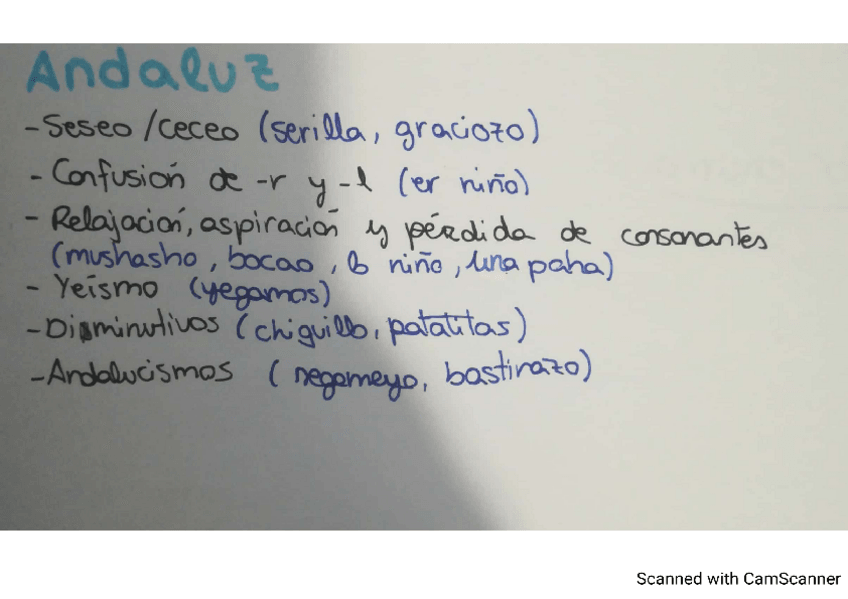 Andaluz
- Seseo/ceceo (serilla, graciozo)
- Confusión de -r y -l (er niño)
- Relajación, aspiración y pérdida de consonantes
(mushasho, bocao, lo niño, una paha)
- Yeísmo (yegamos)
- Disminutivos (chiquillo, patatitas)
- Andalucismos (negomeyo, bastinazo)
Scanned with CamScanner